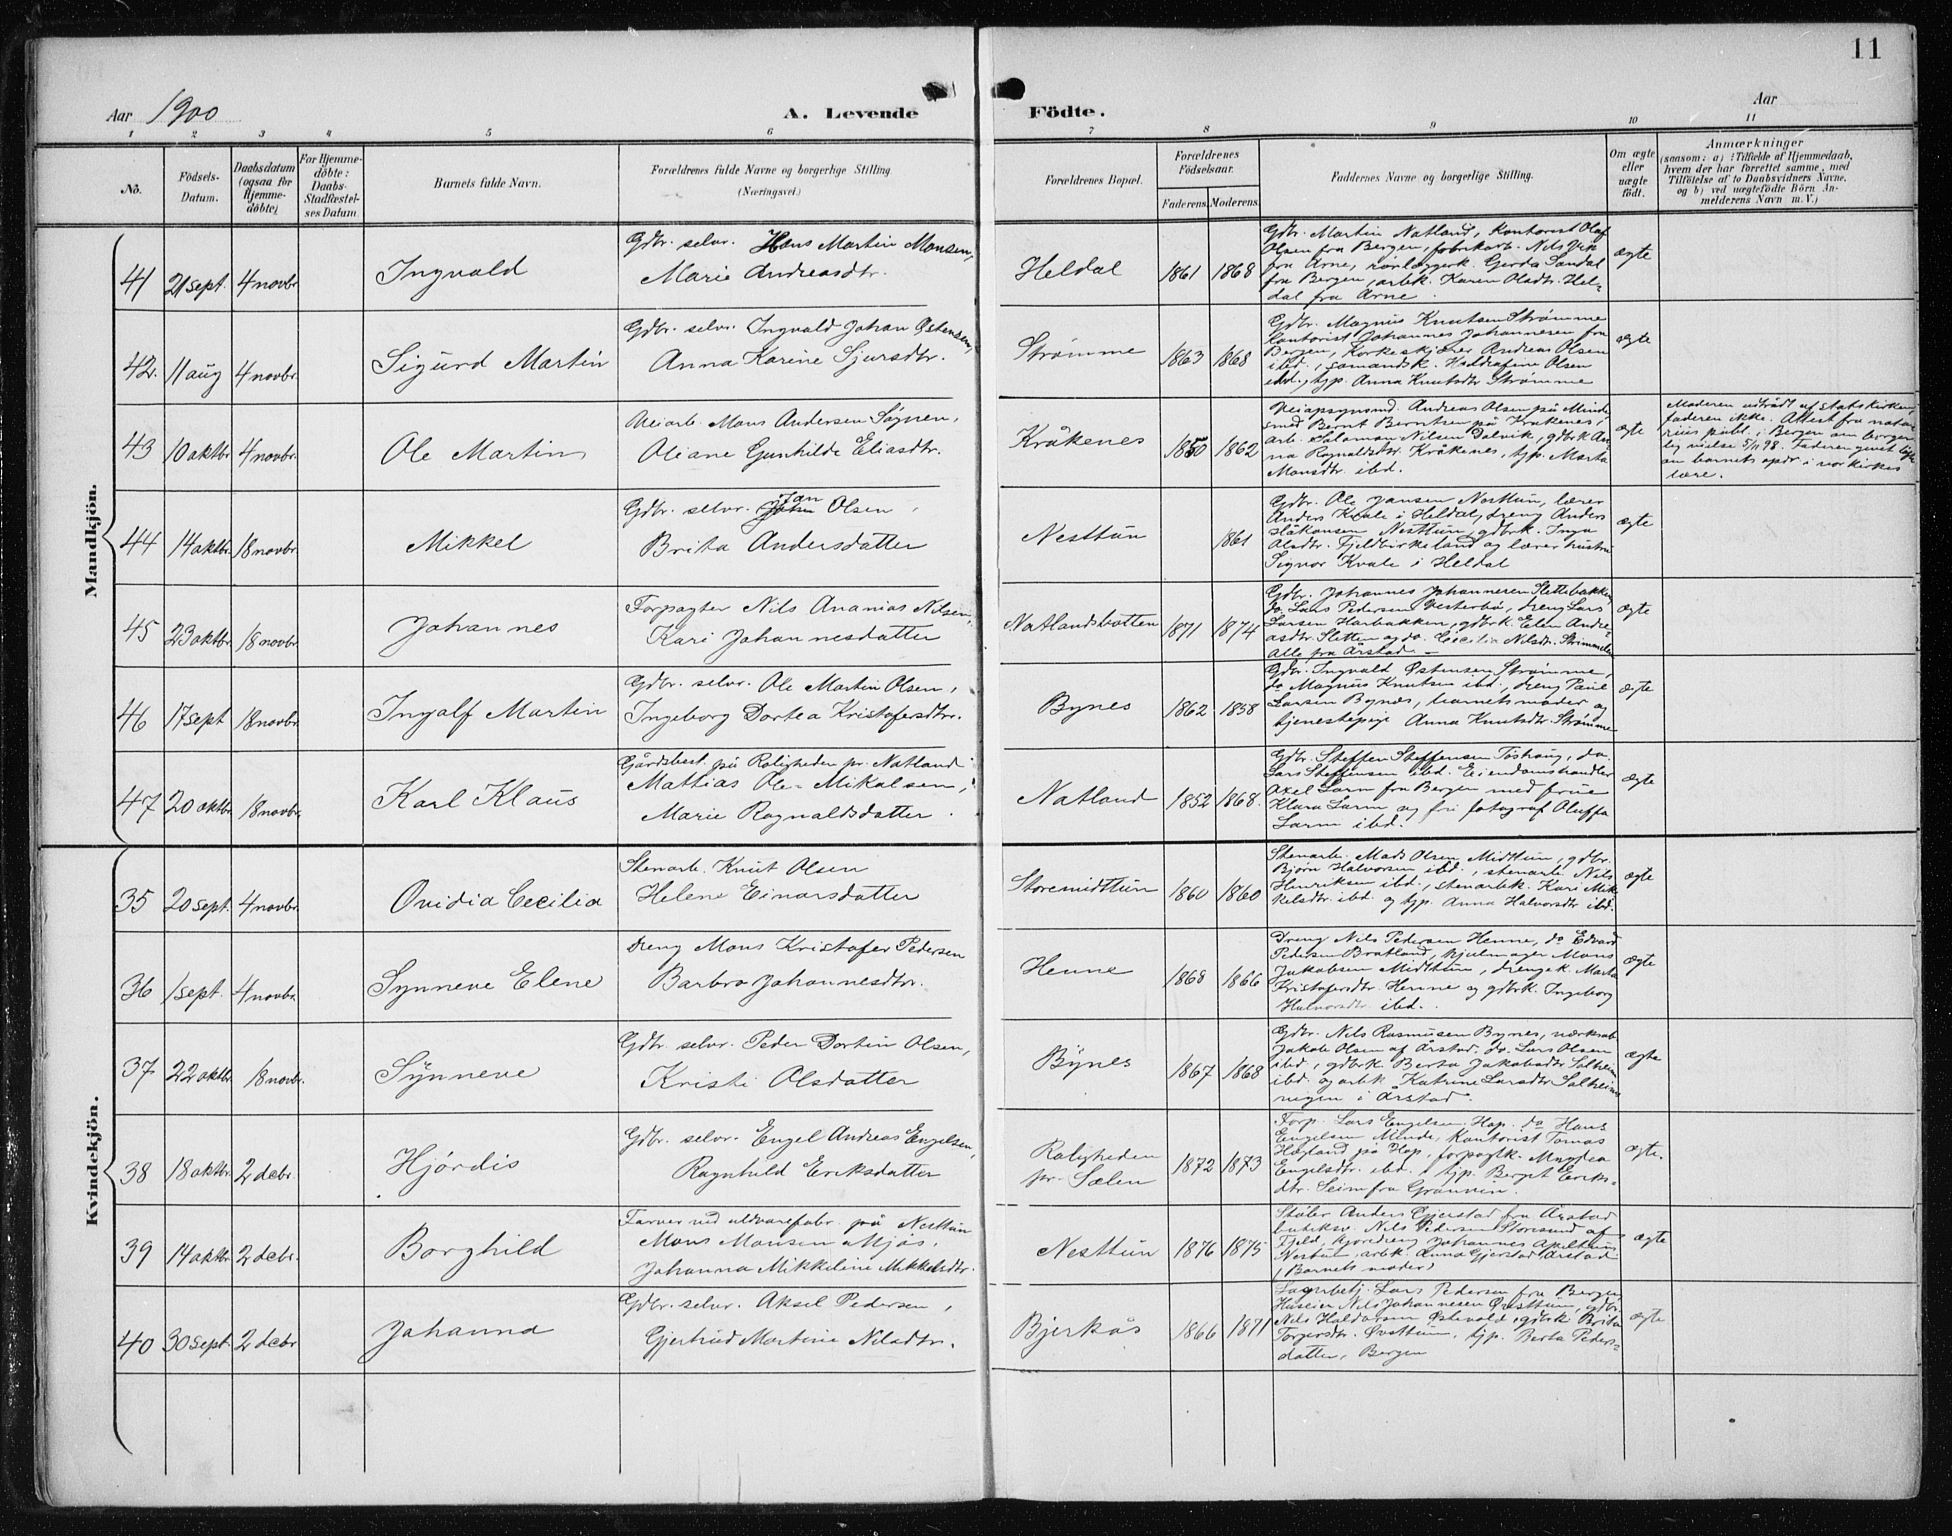 11
Aar 1900
A. Levende Födte.
Aar
1 2 3 4 5 6 7 8 9 10 11
No.
Födsels-Datum.
Daabsdatum (ogsaa for Hjemme-döbte)
For Hjemme-döbte: Daabs-Stadfæstel-ses Datum
Barnets fulde Navn.
Forældrenes fulde Navne og borgerlige Stilling. (Næringsvei.)
Forældrenes Bopæl.
Forældrenes Födselsaar.
Faderens. Moderens.
Faddernes Navne og borgerlige Stilling.
Om ægte eller uægte födt.
Anmærkninger
(saasom: a) i Tilfælde af Hjemmedaab,
hvem der har forrettet samme, med
Tilföielse af to Daabsvidners Navne,
og b) ved uægtefödte Börn An-
melderens Navn m. V.)
Mandkjön.
41 21 sept. 4 novbr. Ingvald
Gdbr. selv. Hans Martin Monsen,
Marie Andreasdtr.
Heldal 1861 1868
Gdbr. Martin Natland, Kontorist Olaf
Olsen fra Bergen, fabrikarb. Nils Vik
fra Arne, rörlæggerk. Gerda Sandal
fra Bergen, arbk. Karen Olsdtr. Hel-
dal fra Arne.
ægte
42. 11 aug 4 novbr. Sigurd Martin
Gdbr. selv. Ingvald Johan Østensen,
Anna Karine Sjursdtr.
Strømme 1863 1868
Gdbr. Magnus Knutsen Strømme
Kontorist Johannes Johannesen fra
Bergen, Korkeskjærer Andreas Olsen
ibd., sømandsk. Olsen
ibd., tjp. Anna Knutsdtr Strømme
ægte
43 10 oktbr. 4 novbr. Ole Martin
Veiarb. Mons Andersen Søgnen,
Oliane Gunhilde Eliasdtr.
Kråkenes 1850 1862
Veiopsynsmd. Andreas Olsen på Minde
smed Bernt Berntsen på Kråkenes,
arb. Salamon Nilsen Dalvik, gdbrk An-
na Ragnaldsdtr. Kråkenes, tjp. Marta
Monsdtr. ibd.
ægte
Moderen udtrådt af statskirken,
faderen ikke. Attest fra nota-
rius publ. i Bergen om borger-
lig vielse 5/11 98. Faderen givet löfte
om barnets opdr. i vor kirkes
lære.
44 14 oktbr. 18 novbr. Mikkel
Gdbr. selv. Jan Olsen,
Brita Andersdatter
Nesttun 1861
Gdbr. Ole Jansen Nesttun, lærer
Anders Kvale i Heldal, dreng Anders
Håkonsen Nesttun, gdbrk. Inga
Olsdtr. Fjeldbirkeland og lærerhustru
Signor Kvale i Heldal
ægte
45 23 oktbr. 18 novbr. Johannes
Forpagter Nils Ananias Nilsen,
Kari Johannesdatter
Natlandsbotten 1871 1874
Gdbr. Johannes Johannesen Slettebakken
do. Lars Pedersen Vesterbö, dreng Lars
Larsen Harbakken, gdbrk. Elen Andre-
asdtr. Sletten og do. Cecilia Nilsdtr.
Alle fra Årstad.
ægte
46 17 sept 18 novbr. Ingolf Martin
Gdbr. selv. Ole Martin Olsen,
Ingeborg Dortea Kristofersdtr.
Bynes 1862 1858
Gdbr. Ingvald Østensen Strømme,
do Magnus Knutsen ibd., dreng Paul
Larsen Bynes, barnets moder og
tjenestepige Anna Knutsdtr. Strømme
ægte
47 20 oktbr. 18 novbr. Karl Klaus
Gårdsbest. på Roligheden pr. Natland
Mathias Ole Mikalsen,
Marie Ragnaldsdatter.
Natland 1852 1868.
Gdbr. Steffen Steffensen, do
Lars Steffensen ibd. Eiendomshandler
Axel Larm fra Bergen med frue
Klara Larm og fri fotograf Oluffa
Larm ibd.
ægte
Kvindekjön.
35 20 sept. 4 novbr. Ovidia Cecilia
Stenarb. Knut Olsen
Helene Einarsdatter
Storemidttun 1860 1860
Stenarb. Mads Olsen Midttun, gdbr.
Bjørn Halvorsen ibd., stenarb. Nils
Henriksen ibd., stenarbk. Kari Mik-
kelsdtr. ibd. og tjp. Anna Halvorsdtr ibd.
ægte
36 1 sept. 4 novbr. Synneve Elene
Dreng Mons Kristofer Pedersen
Barbro Johannesdtr.
Henne 1868 1866
Dreng Nils Pedersen Henne, do Edvard
Pedersen Bratland, hjulmager Mons
Jakobsen Midttun, drengek. Marta
Kristofersdtr. Henne og gdbrk. Ingeborg
Halvorsdtr ibd.
ægte
37 22 oktbr. 18 novbr. Synneve
Gdbr. selv. Peder Dortin Olsen,
Kristi Olsdatter
Bynes 1867 1868
Gdbr. Nils Rasmusen Bynes,
Jakob Olsen af Årstad, do. Lars Olsen
ibd, gdbrk Berta Jakobsdtr Solheim
ibd. og arbk Katrine Larsdtr Solheims-
vigen i Årstad.
ægte
38 18 oktbr. 2 debr. Hjørdis
Gdbr. selv. Engel Andreas Engelsen,
Ragnhild Eriksdatter
Roligheden
pr. Sælen 1872 1873
Forp. Lars Engelsen Hop, do Hans
Engelsen Minde, kontorist Tomas
Hægland på Hop, forpagtk. Magdea
Engelsdtr. ibd. tjp. Berget Eriks-
dtr. Seim fra Granvin.
ægte.
39 14 oktbr. 2 debr. Borghild
Farver ved uldvarefabr. på Nesttun
Mons Monsen Mjøs,
Johanna Mikkeline Mikkelsdtr.
Nesttun 1876 1875
Støber Anders Gjerstad fra Årstad
butiksv. Nils Pedersen Storesund af
Fjeld, kjøredreng Johannes Apeltun
Nesttun, arbk. Anna Gjerstad Årstad
(Barnets moder)
ægte
40 30 sept. 2 debr Johanna
Gdbr. selv. Aksel Pedersen,
Gjertrud Martine Nilsdtr.
Bjerkås 1866 1871
Lagerbetj. Lars Pedersen fra Bergen
Huseier Nils Johannesen Øvsttun, gdbr.
Nils Haldorsen Østevold, gdbrk Brita
Torgersdtr. Øvsttun, tjp. Berta Peders-
datter, Bergen
ægte